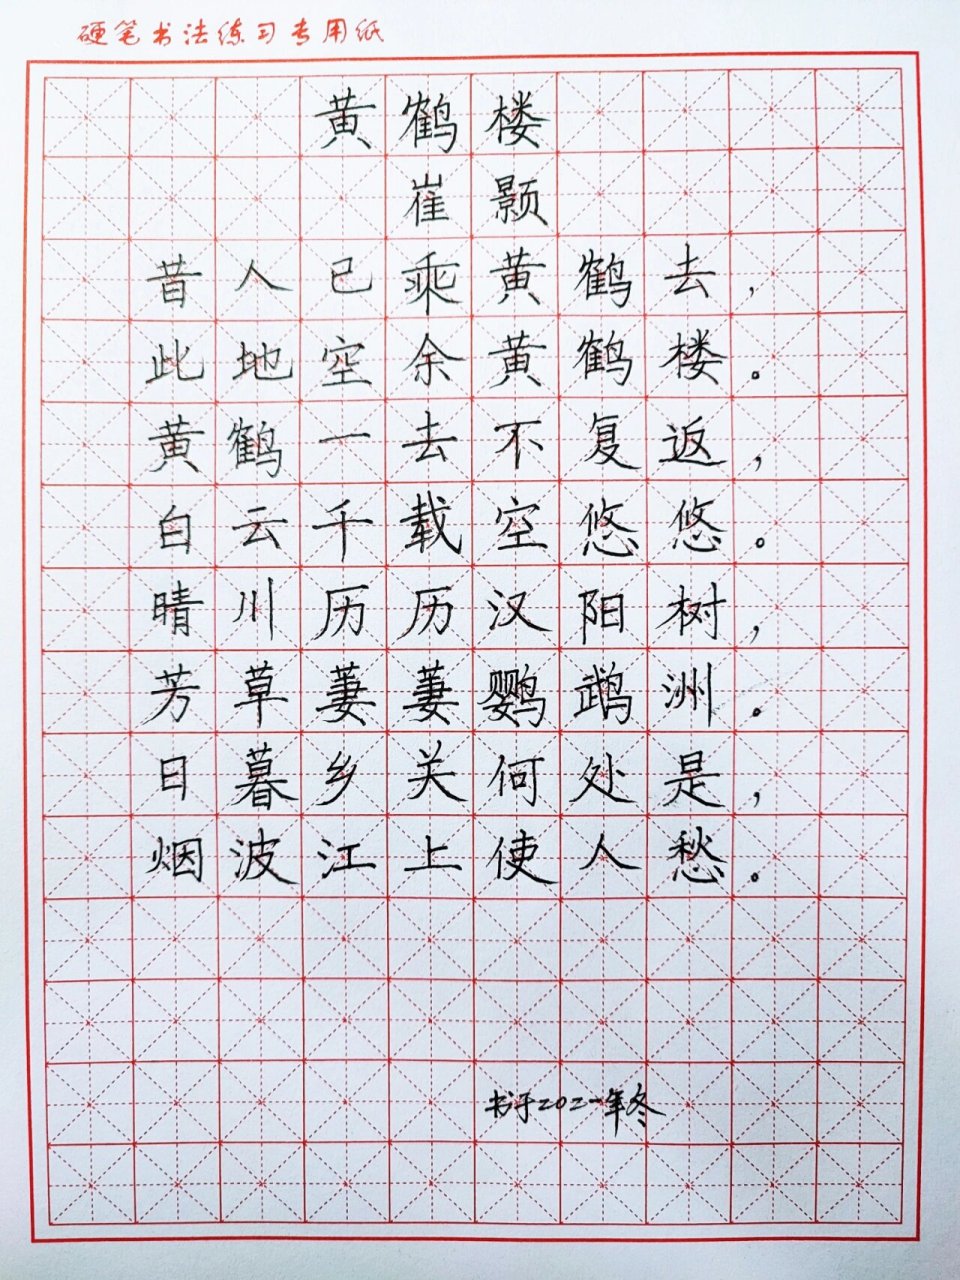 硬笔书法练习专用纸
黄鹤楼
崔颢
昔人已乘黄鹤去，
此地空余黄鹤楼。
黄鹤一去不复返，
白云千载空悠悠。
晴川历历汉阳树，
芳草萋萋鹦鹉洲。
日暮乡关何处是，
烟波江上使人愁。
书于二〇二一年冬